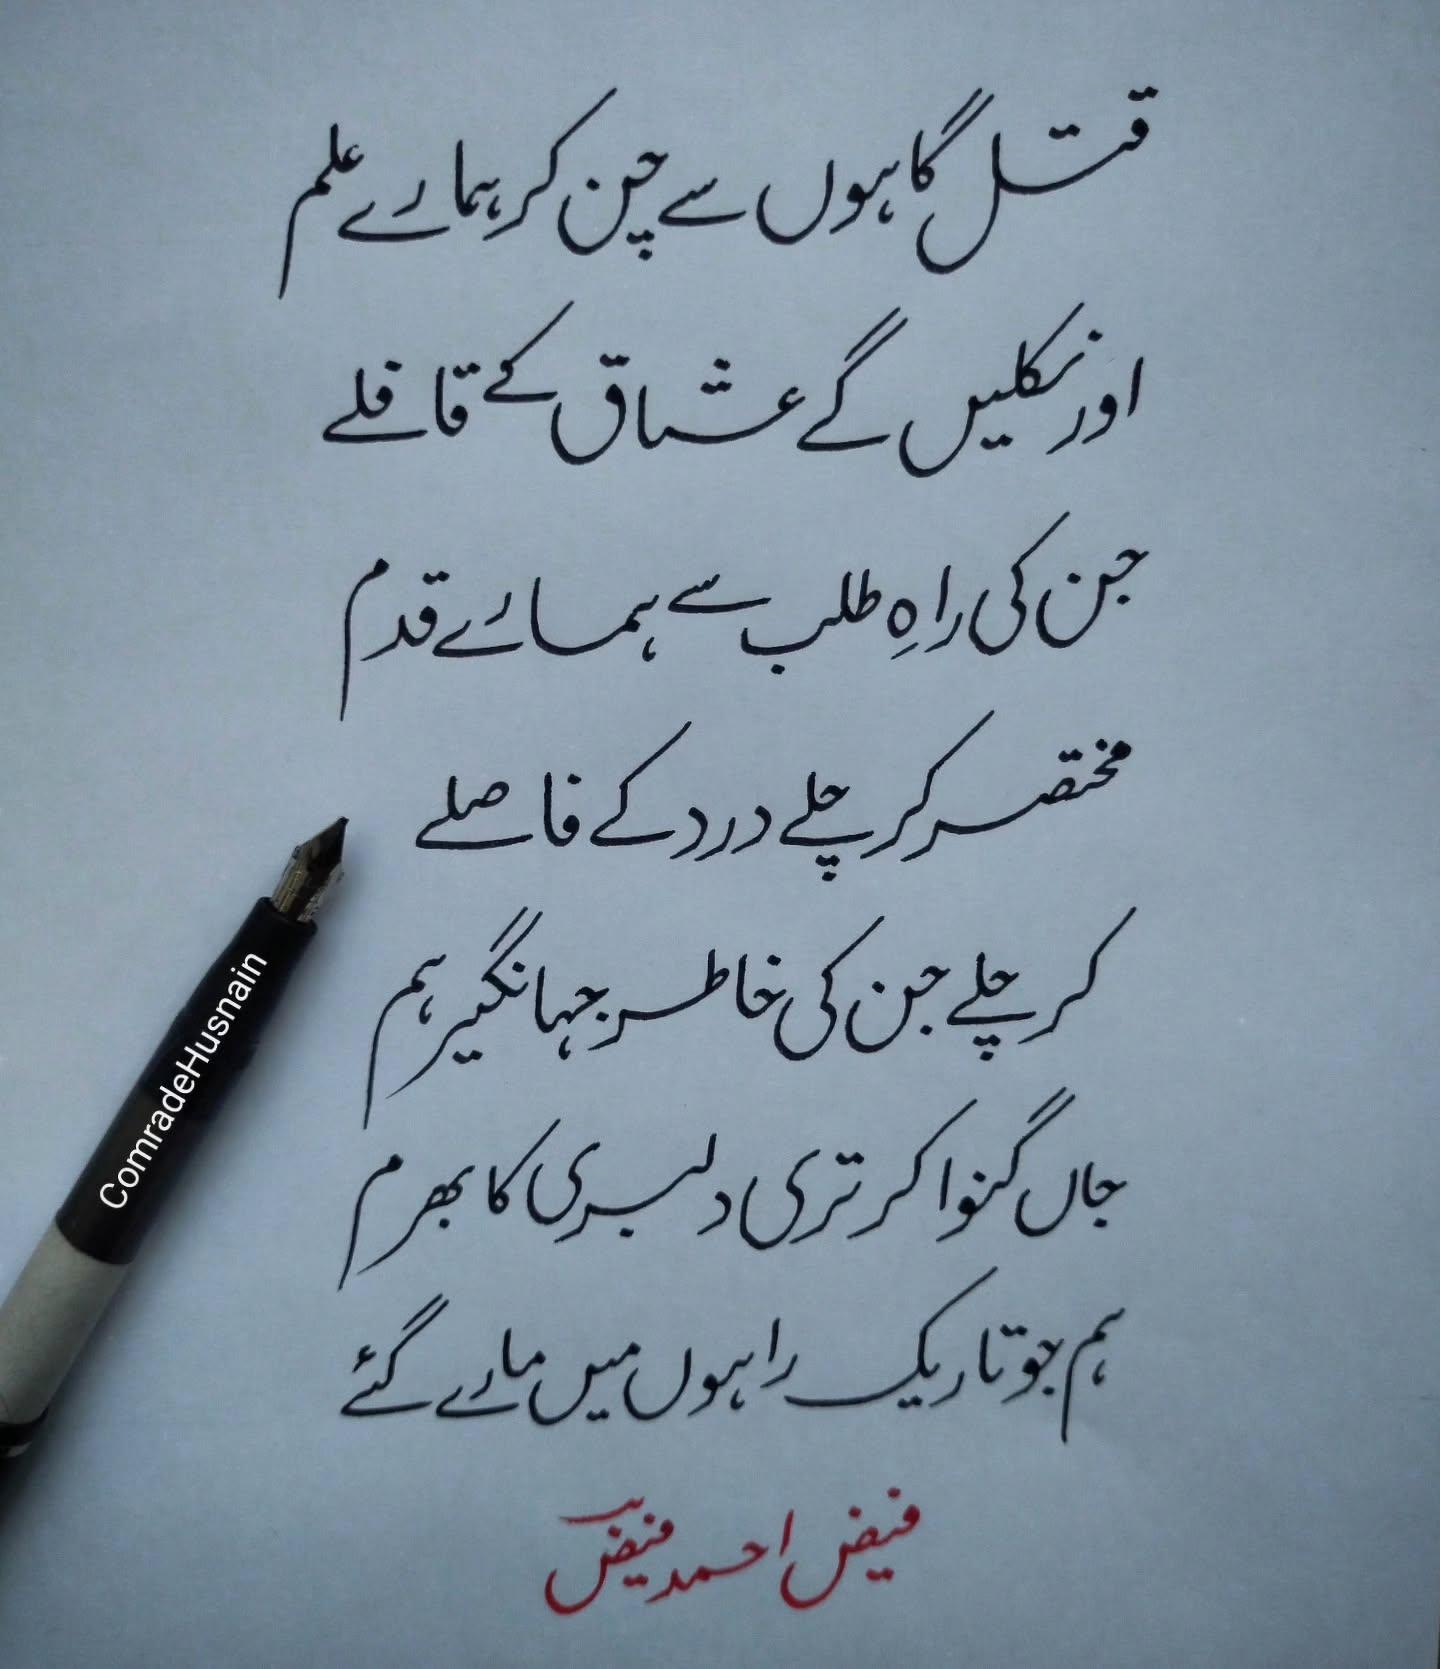 قتل گاہوں سے چن کر ہمارے علم
اور نکلیں گے عشاق کے قافلے
جن کی راہِ طلب سے ہمارے قدم
مختصر کر چلے درد کے فاصلے
کر چلے جن کی خاطر جہانگیر ہم
جاں گنوا کر تری دلبری کا بھرم
ہم جو تاریک راہوں میں مارے گئے
فیض احمد فیضؔ
ComradeHusnain